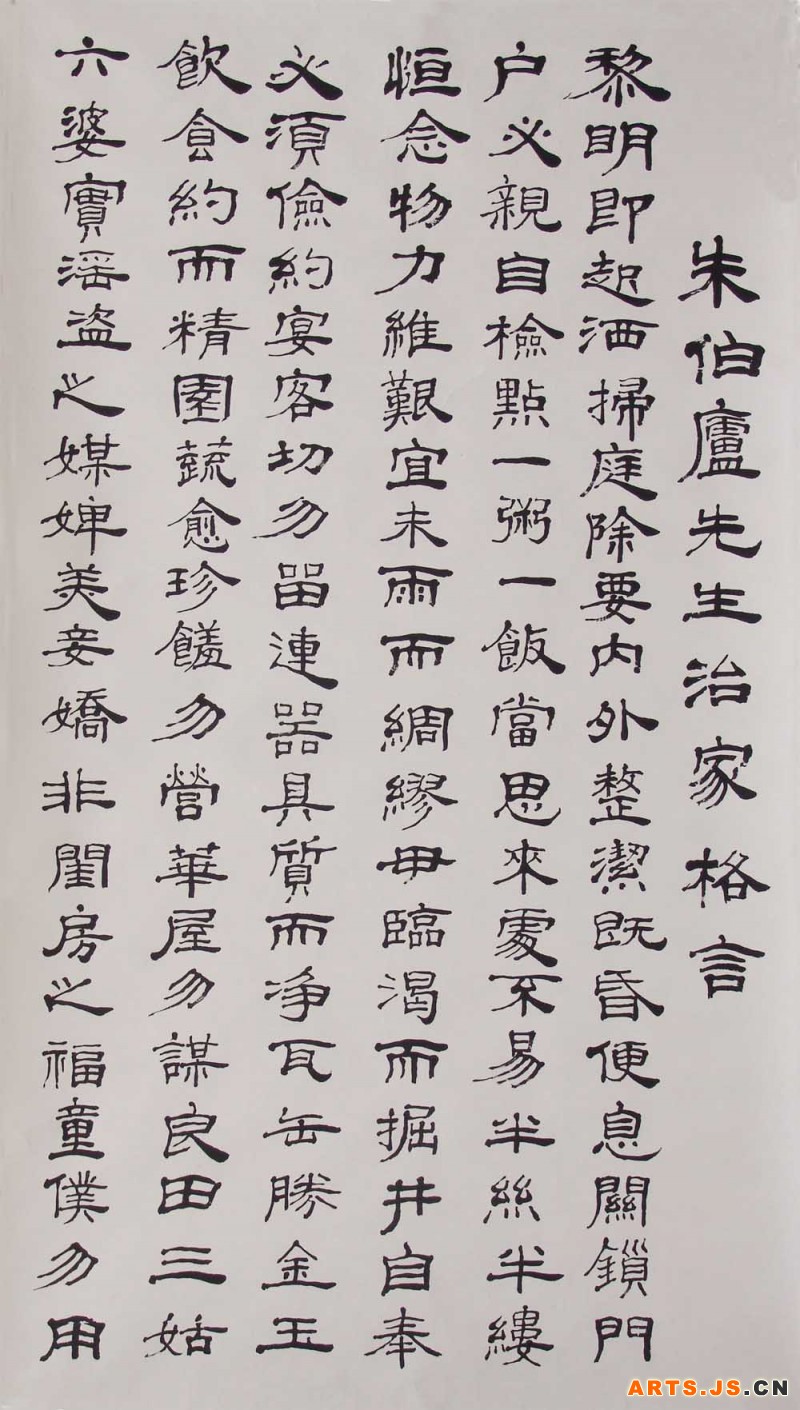 朱伯廬先生治家格言
黎明即起洒掃庭除要内外整潔既昏便息關鎖門
户必親自檢點一粥一飯當思來處不易半絲半縷
恒念物力維艱宜未雨而綢繆毋臨渴而掘井自奉
必須儉約宴客切勿畱連器具質而净瓦缶勝金玉
飲食約而精園蔬愈珍饈勿營華屋勿謀良田三姑
六婆實滛盗之媒婢美妾嬌非閨房之福童僕勿用
ARTS.JS.CN